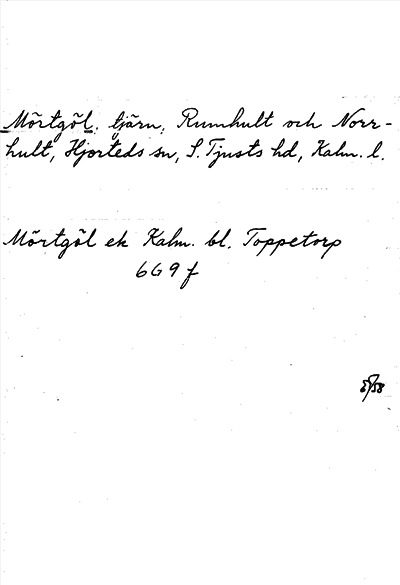 Mörtgöl, tjärn, Rumhult och Norr-
hult, Hjorteds sn, S. Tjusts hd, Kalm. l.
Mörtgöl ek Kalm. bl. Toppetorp
6G9f